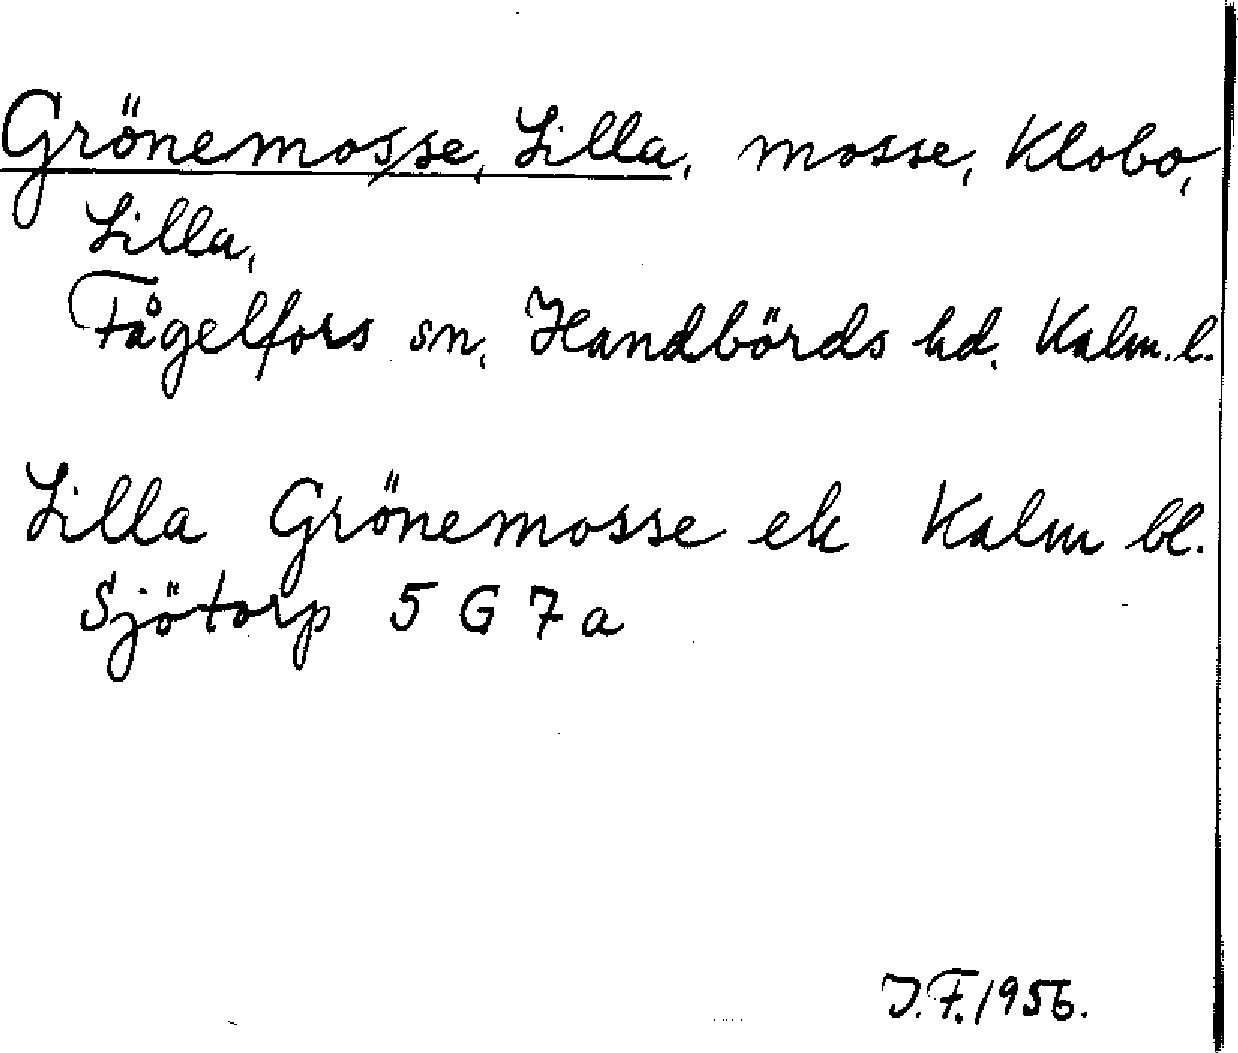 Grönemosse, Lilla, mosse, Klobo,
Lilla,
Fågelfors sn, Handbörds hd. Kalm. l.
Lilla Grönemosse ek Kalm bl.
Sjötorp 5 G 7 a
J.F. 1956.